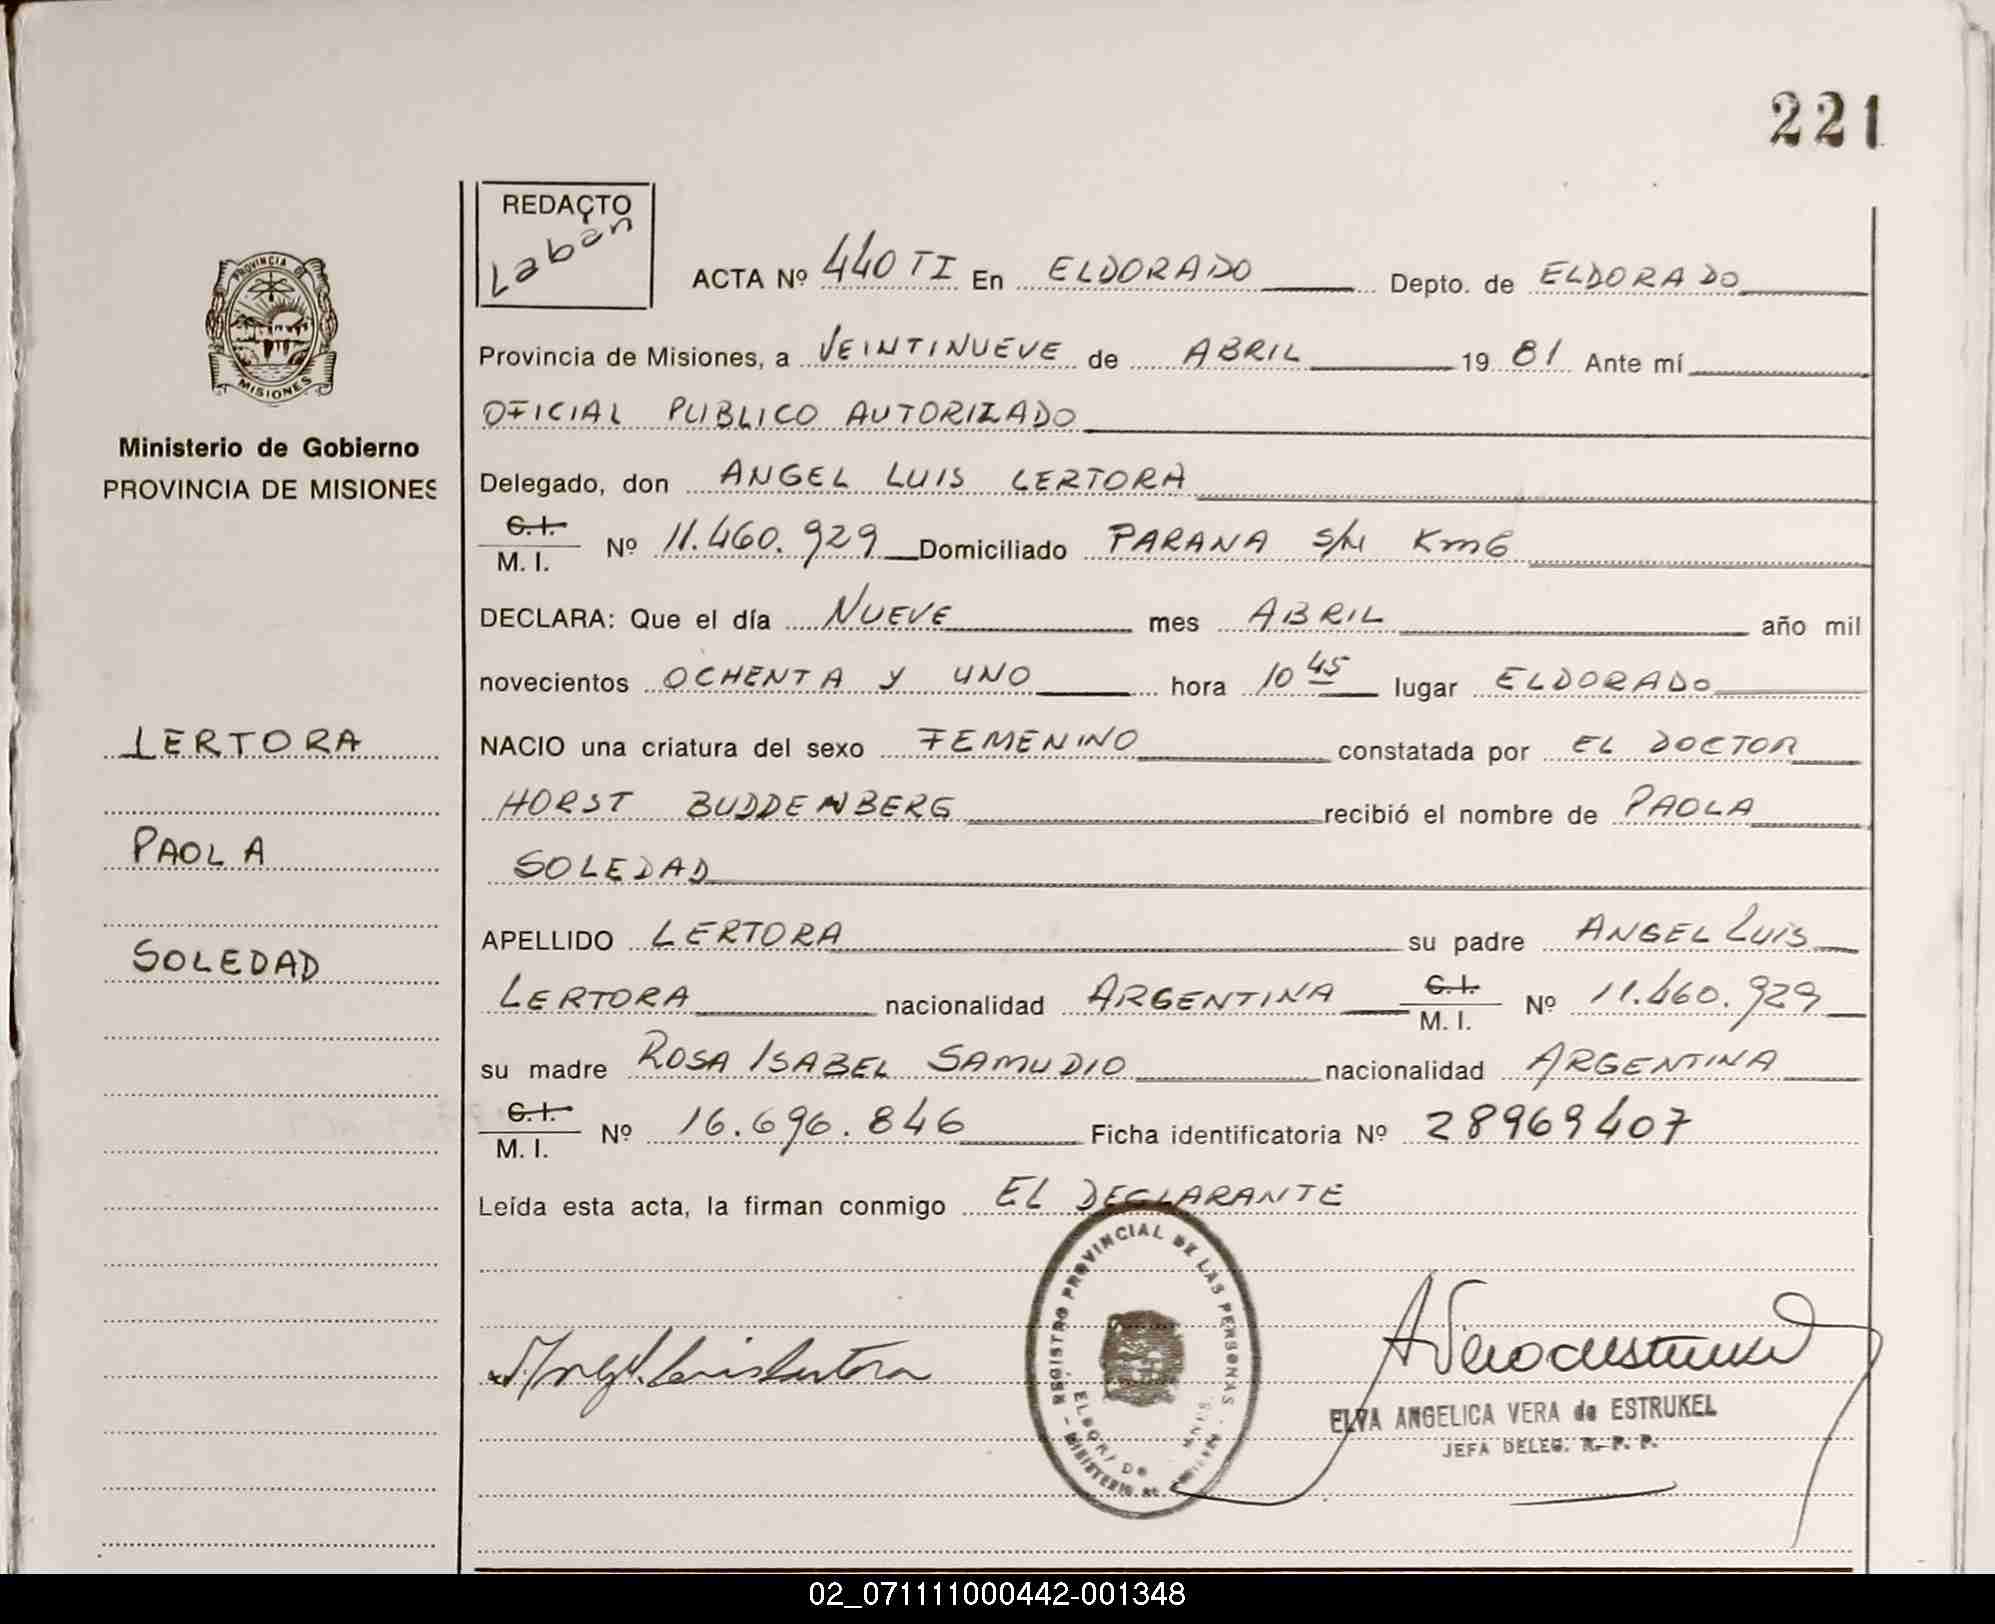 221
REDACTO
Laban
PROVINCIA DE
MISIONES
Ministerio de Gobierno
PROVINCIA DE MISIONES
LERTORA
PAOLA
SOLEDAD
ACTA Nº 440 TI En ELDORADO Depto. de ELDORADO
Provincia de Misiones, a VEINTINUEVE de ABRIL 19 81 Ante mí
OFICIAL PUBLICO AUTORIZADO
Delegado, don ANGEL LUIS LERTORA
C.I.
M. I. Nº 11.460.929 Domiciliado PARANA s/n Km6
DECLARA: Que el día NUEVE mes ABRIL año mil
novecientos OCHENTA Y UNO hora 10 45 lugar ELDORADO
NACIO una criatura del sexo FEMENINO constatada por EL DOCTOR
HORST BUDDENBERG recibió el nombre de PAOLA
SOLEDAD
APELLIDO LERTORA su padre ANGEL LUIS
LERTORA nacionalidad ARGENTINA C.I. M. I. Nº 11.460.929
su madre ROSA ISABEL SAMUDIO nacionalidad ARGENTINA
C.I.
M. I. Nº 16.696.846 Ficha identificatoria Nº 28969407
Leída esta acta, la firman conmigo EL DECLARANTE
REGISTRO PROVINCIAL DE LAS PERSONAS
ELVA ANGELICA VERA de ESTRUKEL
JEFA DELEG. R. P. P.
02_071111000442-001348